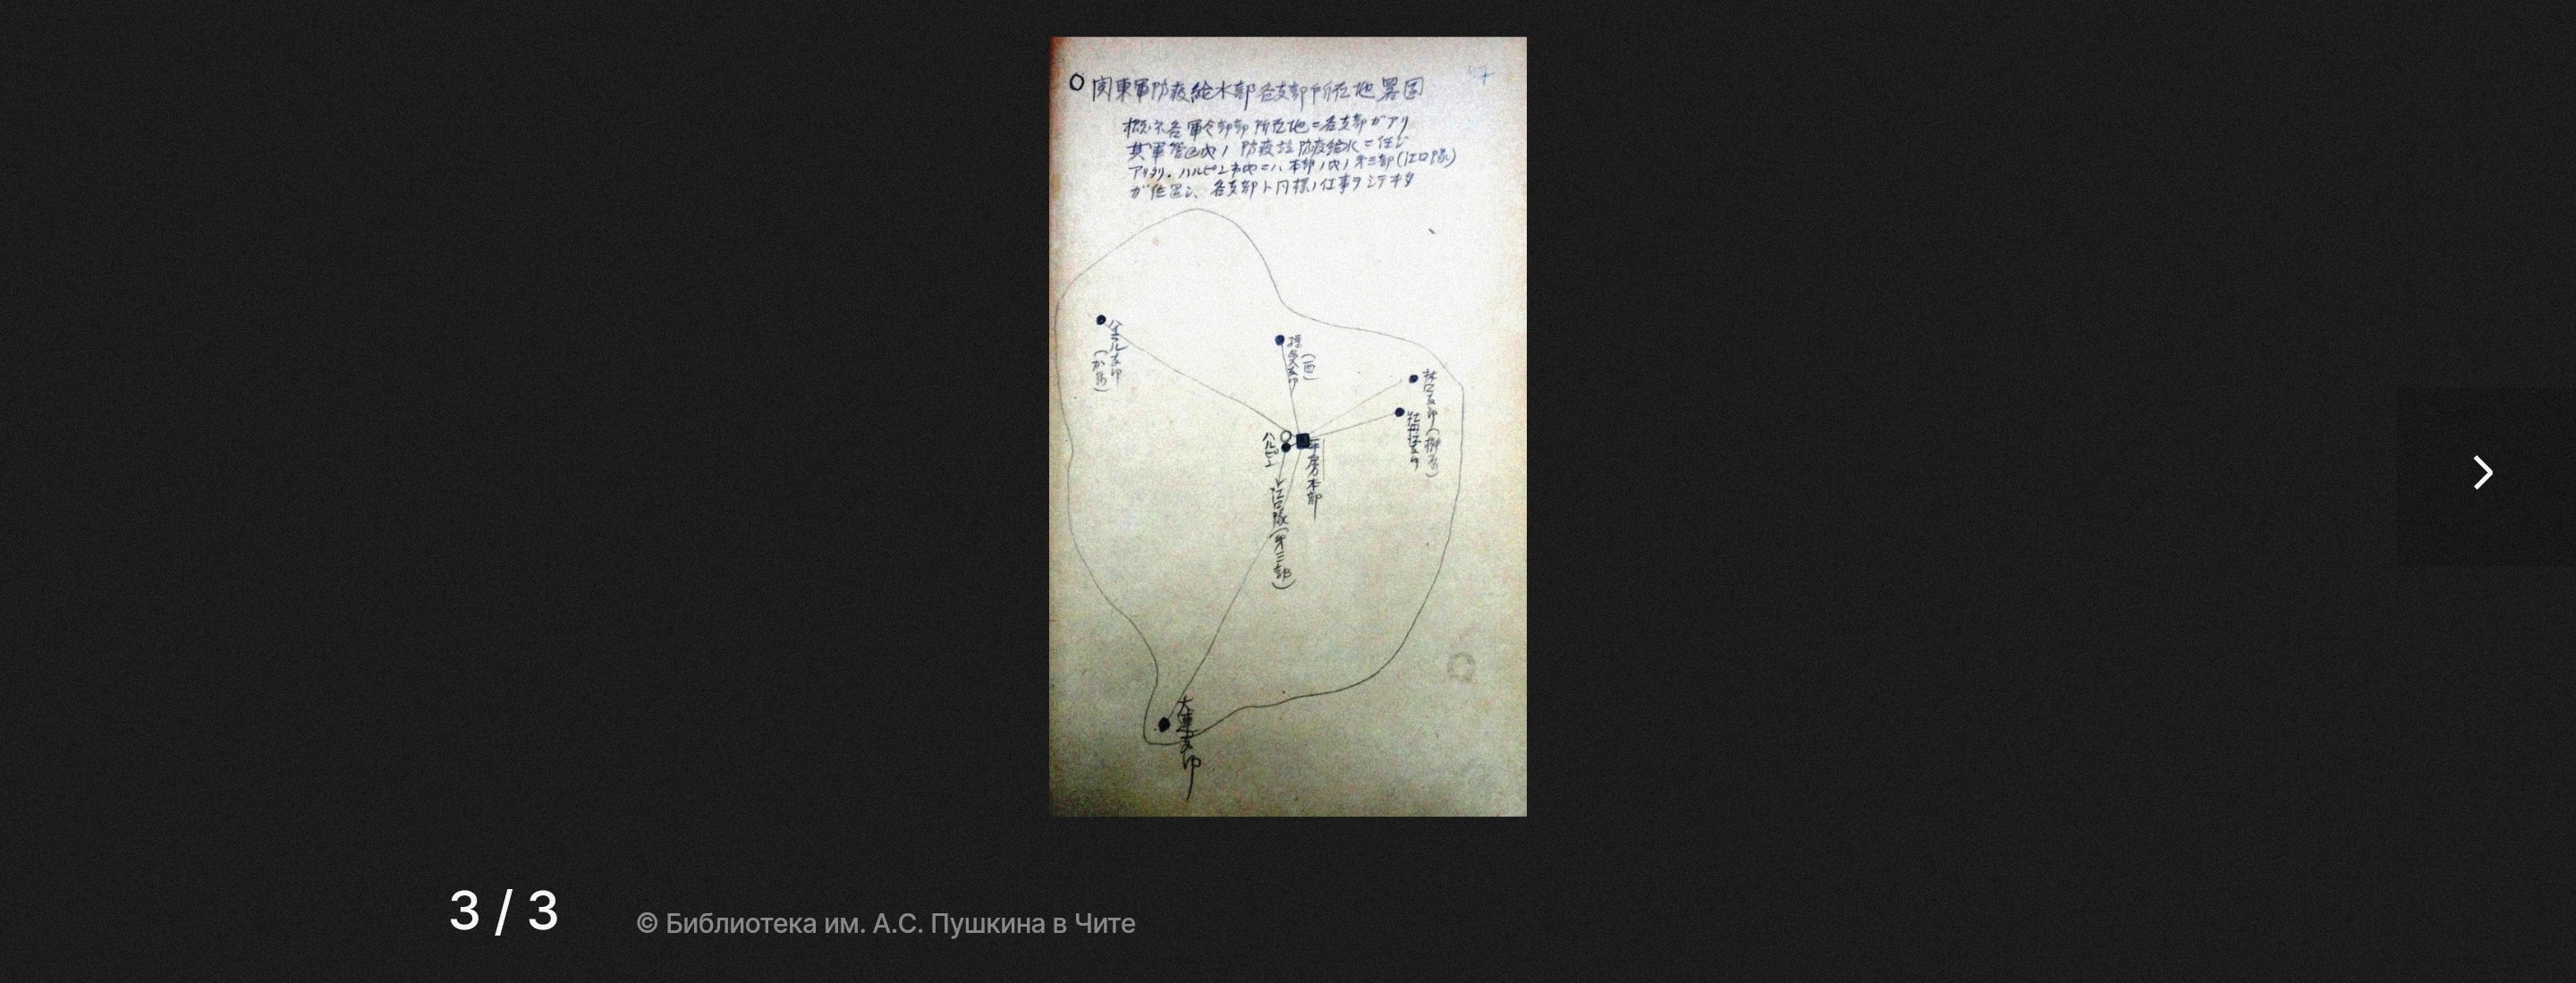 ○関東軍防疫給水部各支部所在地畧図
概ネ各軍令部所在地ニ各支部ガアリ
其軍管区内ノ防疫並防疫給水ニ任ジ
アリタリ。ハルピン市内ニハ本部ノ内ノ第三部(江口隊)
ガ位置シ、各支部ト同様ノ仕事ヲシテキタ
支部
孫呉支部
(西)
林口支部(榊原)
牡丹江支部
ハルピン
平房本部
江口隊(第三部)
大連支部
3 / 3
© Библиотека им. А.С. Пушкина в Чите